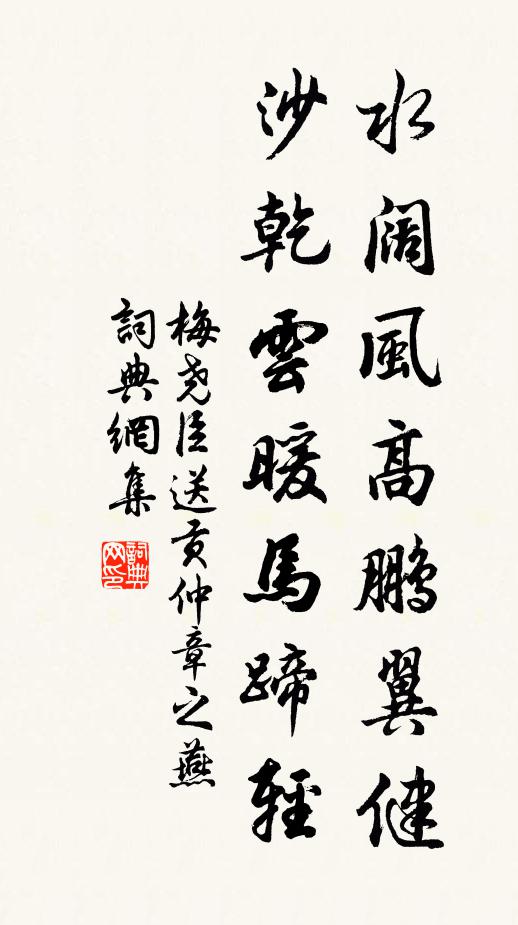 水阔風高鹏翼健
沙乾雲暖馬蹄輕
梅尧臣送贡仲章之燕
詞典網集
詞典网印